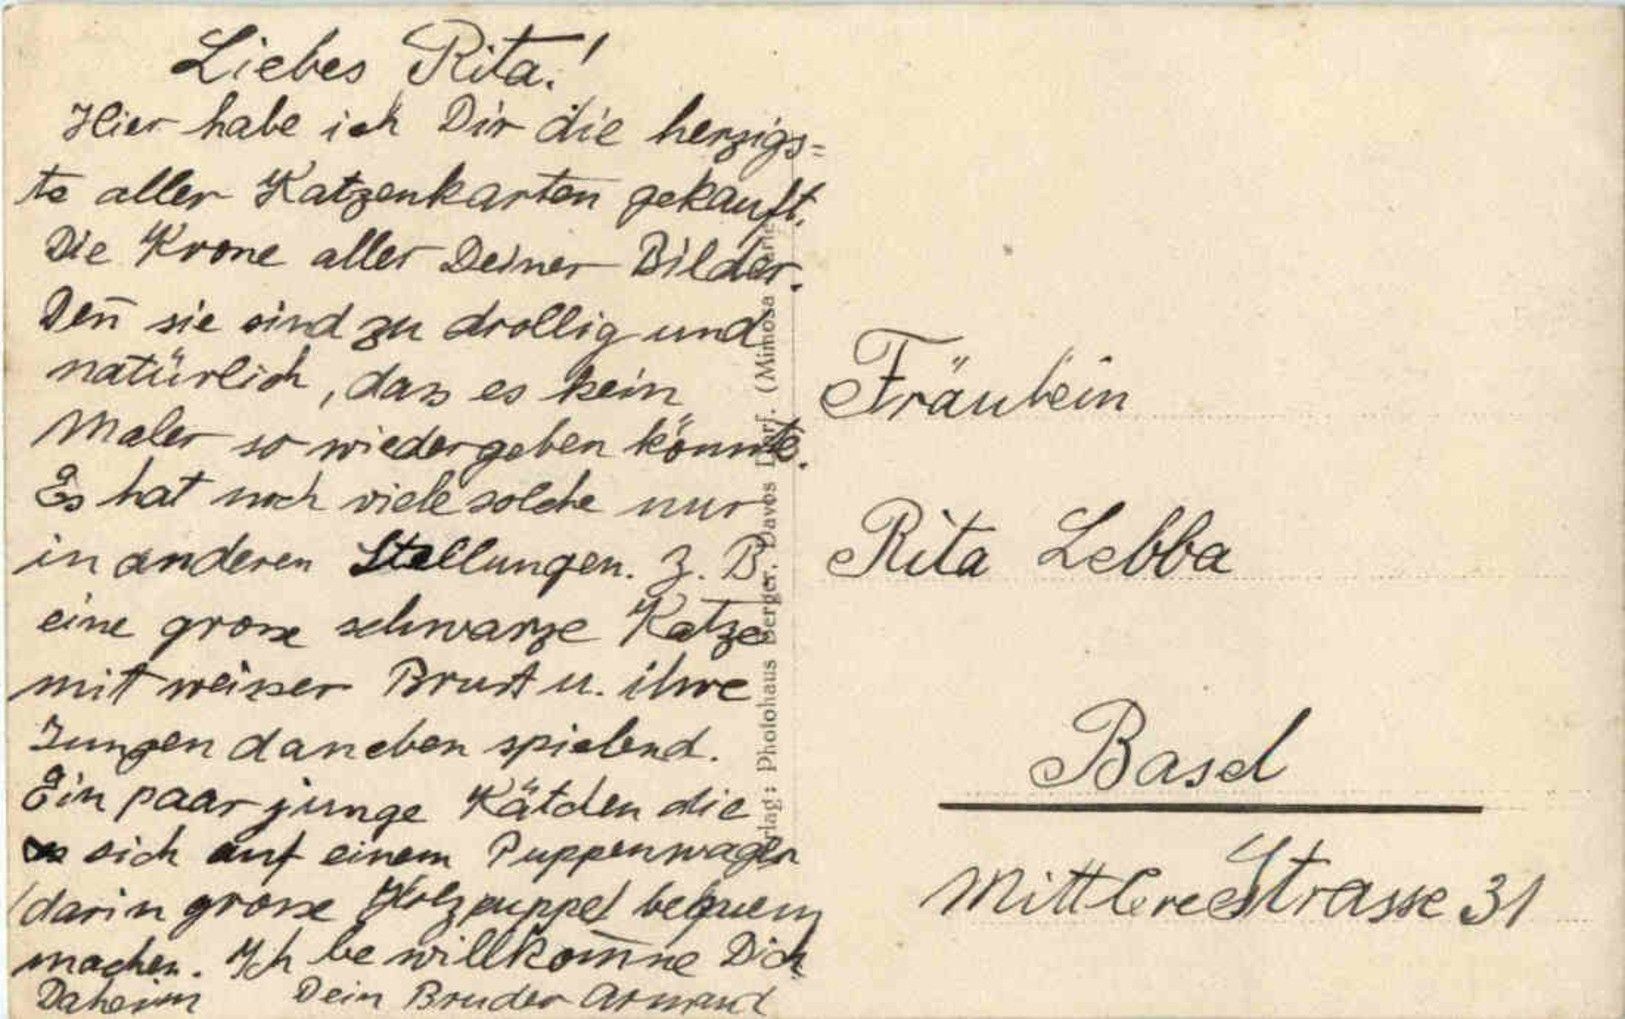 Liebes Rita!
Hier habe ich Dir die herzigs=
te aller Katzenkarten gekauft.
Die Krone aller Deiner Bilder.
Den̄ sie sind zu drollig und
natürlich, dass es kein
Maler so wiedergeben könnte.
Es hat noch viele solche nur
in anderen Stellungen. z. B.
eine grosse schwarze Katze
mit weisser Brust u. ihre
Jungen daneben spielend.
Ein paar junge Kätchen die
sich auf einem Puppenwagen
(darin grosse Holzpuppe) bequem
machen. Ich bewillkom̄ne Dich
Daheim Dein Bruder Armand
rlag: Photohaus Berger, Davos Dorf. (Mimosa
Fräulein
Rita Lebba
Basel
Mittlere Strasse 31